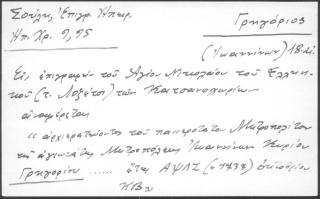 Σούλη, Ἐπιγρ. Ἠπειρ.
Γρηγόριος
Ἠπ. Χρ. 9, 95
(Ἰωαννίνων) 18 αἰ.
Εἰς ἐπιγραφὴν τοῦ Ἁγίου Νικολάου τοῦ Ἑλλην-
κοῦ (τ. Λοζέτσι) τῶν Κατσανοχωρίων
ἀναφέρεται
"ἀρχιερατεύοντος τοῦ πανιερωτάτου Μητροπολίτου
τῆς ἁγιωτάτης Μητροπόλεως Ἰωαννίνων Κυρίου
Γρηγορίου ...... ἔτει ΑΨΛΖ ὀκτωβρίου
ΚΒ"